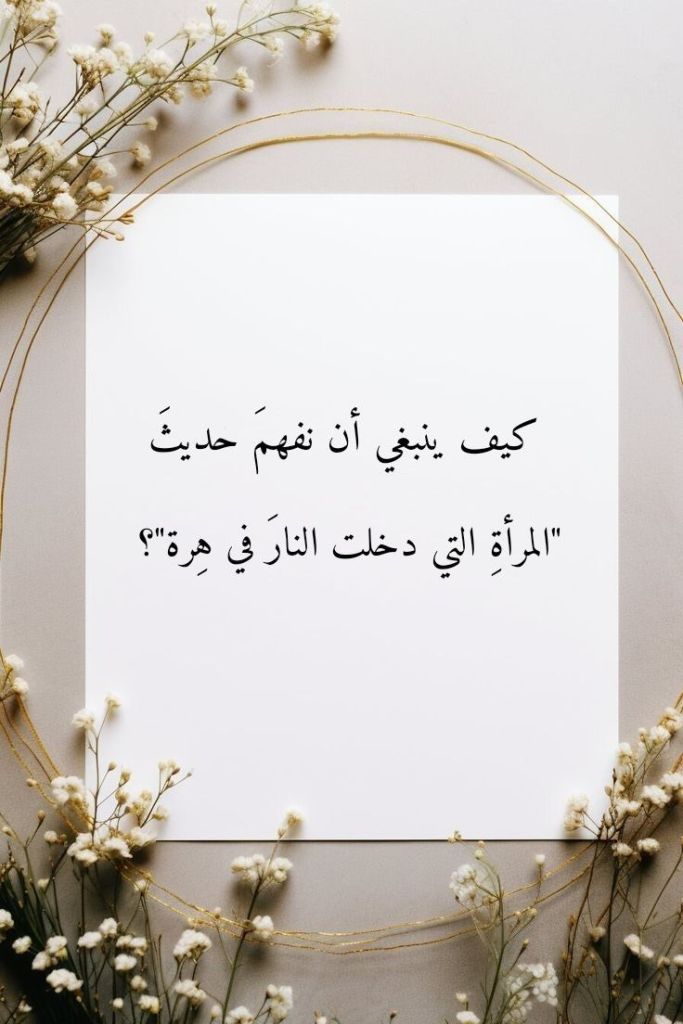 كيف ينبغي أن نفهمَ حديثَ
"المرأةِ التي دخلت النارَ في هِرة"؟